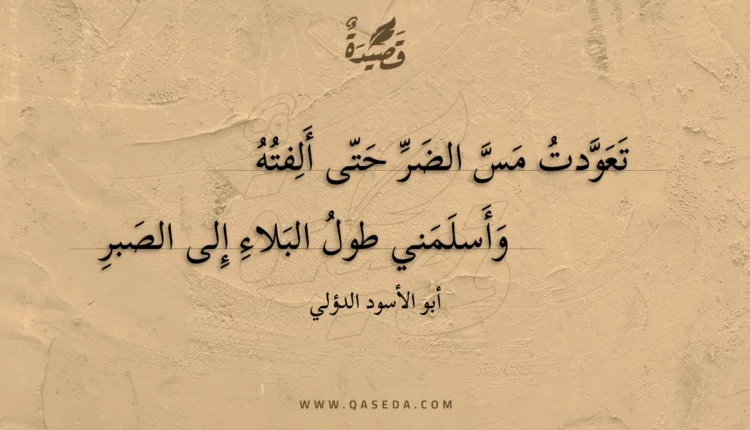 قَصِيدَةٌ
تَعَوَّدتُ مَسَّ الضَرِّ حَتّى أَلِفتُهُ
وَأَسلَمَني طولُ البَلاءِ إِلى الصَبرِ
أبو الأسود الدؤلي
WWW.QASEDA.COM